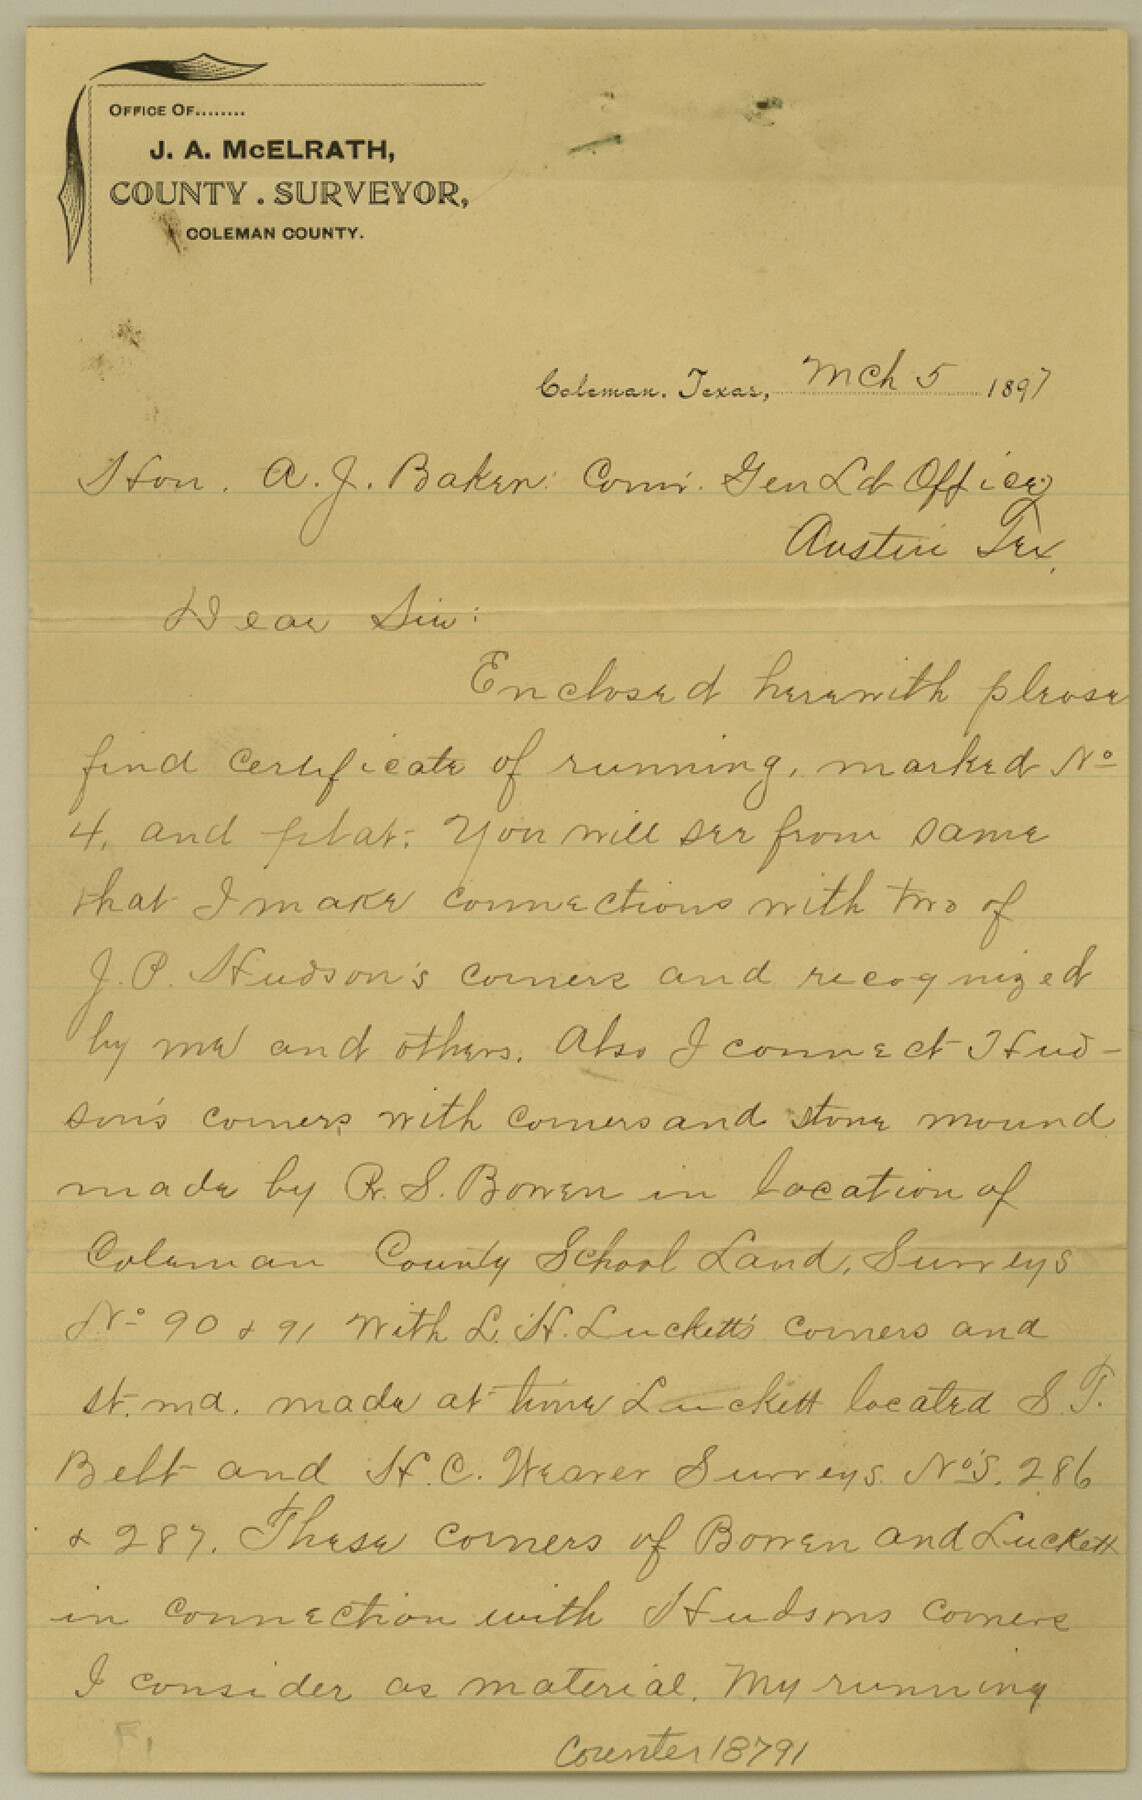 OFFICE OF........
J. A. McELRATH,
COUNTY . SURVEYOR,
COLEMAN COUNTY.
Coleman, Texas, Mch 5 1897
Hon. A. J. Baker: Comr. Gen Ld Office,
Austin Tex.
Dear Sir:
Enclosed herewith please
find certificate of running, marked No
4, and plat. You will see from same
that I make connections with two of
J. P. Hudson's corners and recognized
by me and others. Also I connect Hud-
son's corners with corners and stone mound
made by R. S. Bowen in location of
Coleman County School Land, Surveys
No 90 & 91 With L. H. Luckett's corners and
st. md. made at time Luckett located S. T.
Belt and H. C. Weaver Surveys. No's. 286
& 287. These corners of Bowen and Luckett
in connection with Hudsons corners
I consider as material. My running
Counter 18791